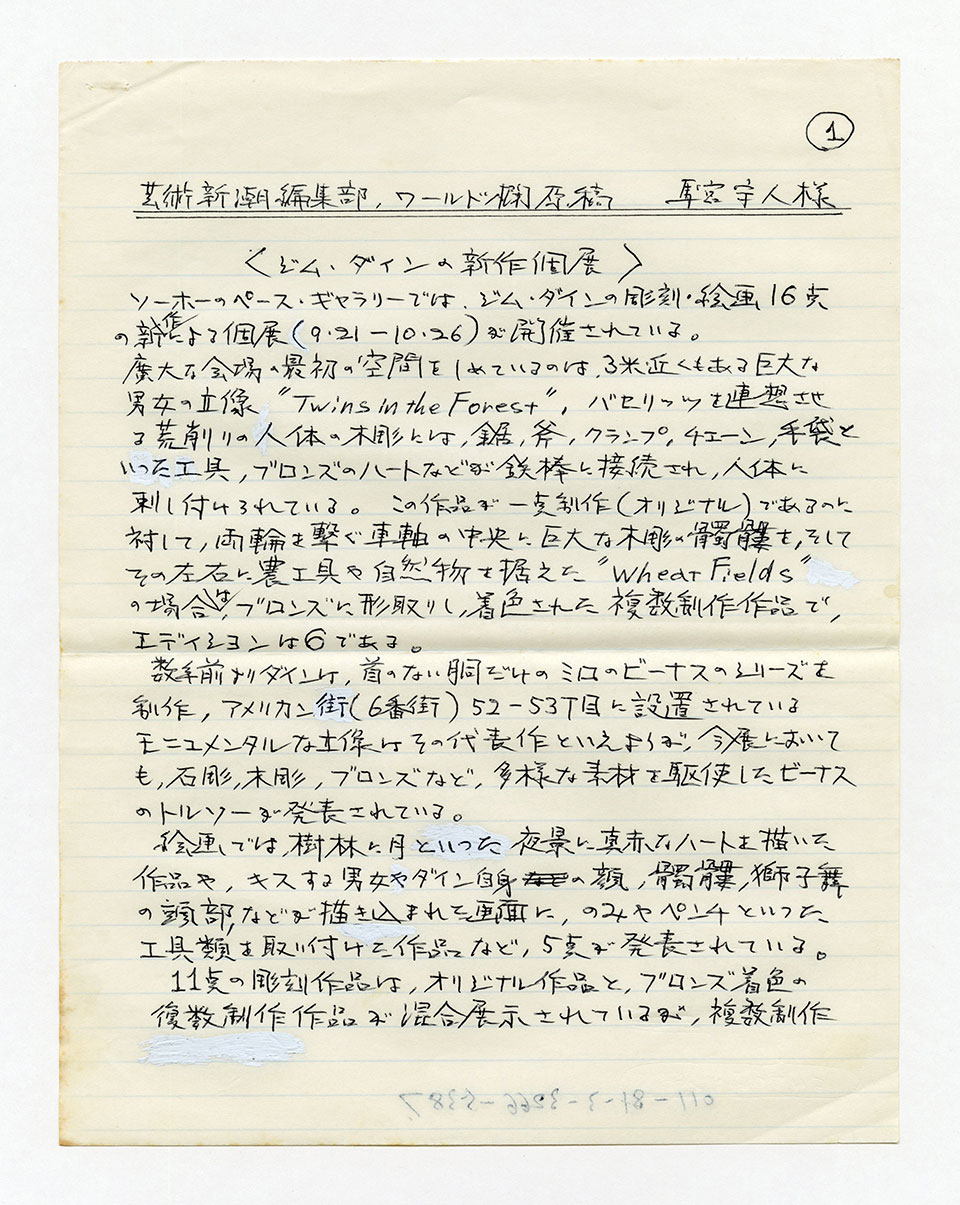 ①
芸術新潮編集部, ワールド欄原稿 宮宇人様
〈ジム・ダインの新作個展〉
ソーホーのペース・ギャラリーでは、ジム・ダインの彫刻・絵画16点
の新作による個展(9・21-10・26)が開催されている。
廣大な会場の最初の空間をしめているのは、3米近くもある巨大な
男女の立像 "Twins in the Forest", バセリッツを連想させ
る荒削りの人体の木彫には, 鋸, 斧, クランプ, チエーン, 手袋と
いった工具, ブロンズのハートなどが鉄棒に接続され, 人体に
刺し付けられている。 この作品が一点制作(オリジナル)であるのに
対して, 両輪を繋ぐ車軸の中央に巨大な木彫の髑髏を, そして
その左右に農工具や自然物を据えた"Wheat Fields"
の場合は, ブロンズに形取りし, 着色された複数制作作品で,
エディションは6である。
数年前よりダインは, 首のない胴だけのミロのビーナスのシリーズを
制作, アメリカン街(6番街) 52-53丁目に設置されている
モニュメンタルな立像はその代表作といえようが, 今展において
も, 石彫, 木彫, ブロンズなど, 多様な素材を駆使したビーナス
のトルソーが発表されている。
絵画では, 樹林に月といった夜景に真赤なハートを描いた
作品や, キスする男女やダイン自身の顔, 髑髏, 獅子舞
の頭部, などが描き込まれた画面に, のみやペンチといった
工具類を取り付けた作品など, 5点が発表されている。
11点の彫刻作品は, オリジナル作品と, ブロンズ着色の
復数制作作品が混合展示されているが, 複数制作
011-81-3-3266-5387